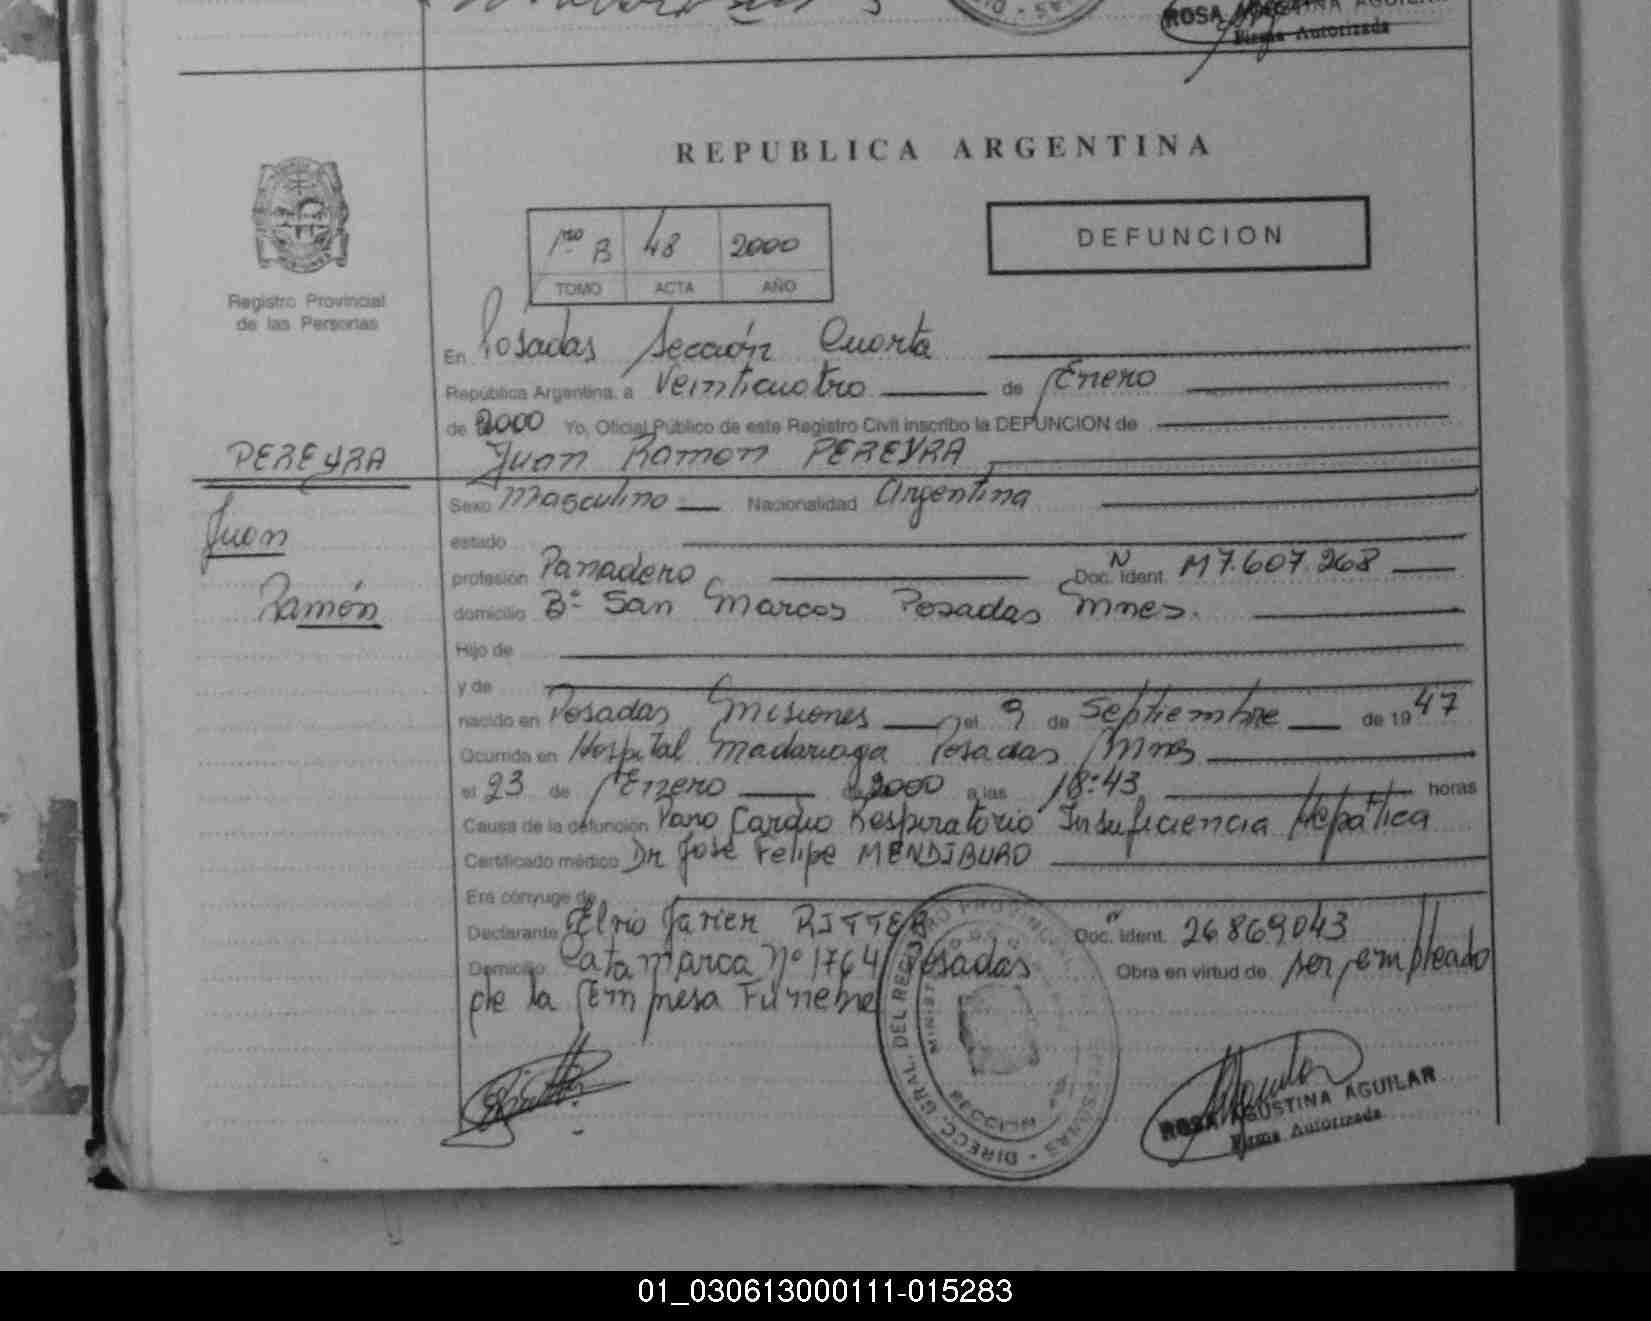 ROSA AGUSTINA AGUILAR
Firma Autorizada
REPUBLICA ARGENTINA
1ro B 48 2000
TOMO ACTA AÑO
DEFUNCION
Registro Provincial
de las Personas
En Posadas Sección Cuarta
República Argentina, a Veinticuatro de Enero
de 2000 Yo, Oficial Público de este Registro Civil inscribo la DEFUNCION de
PEREYRA Juan Ramon PEREYRA
Juan
Ramón
Sexo Masculino Nacionalidad Argentina
estado
profesión Panadero Doc. Ident. N M7.607.268
domicilio Bº San Marcos Posadas Mnes.
Hijo de
y de
nacido en Posadas Misiones el 9 de Septiembre de 1947
Ocurrida en Hospital Madariaga Posadas Mnes
el 23 de Enero de 2000 a las 18:43 horas
Causa de la defunción Paro Cardio Respiratorio Insuficiencia Hepática
Certificado médico Dr José Felipe MENDIBURO
Era cónyuge de
Declarante Elvio Javier RITTER Doc. Ident. N 26869043
Domicilio Catamarca Nº 1764 Posadas Obra en virtud de ser empleado
de la Empresa Fúnebre
DIREC. GRAL. DEL REGISTRO PROVINCIAL PERSONAS
SECCION
ROSA AGUSTINA AGUILAR
Firma Autorizada
01_030613000111-015283